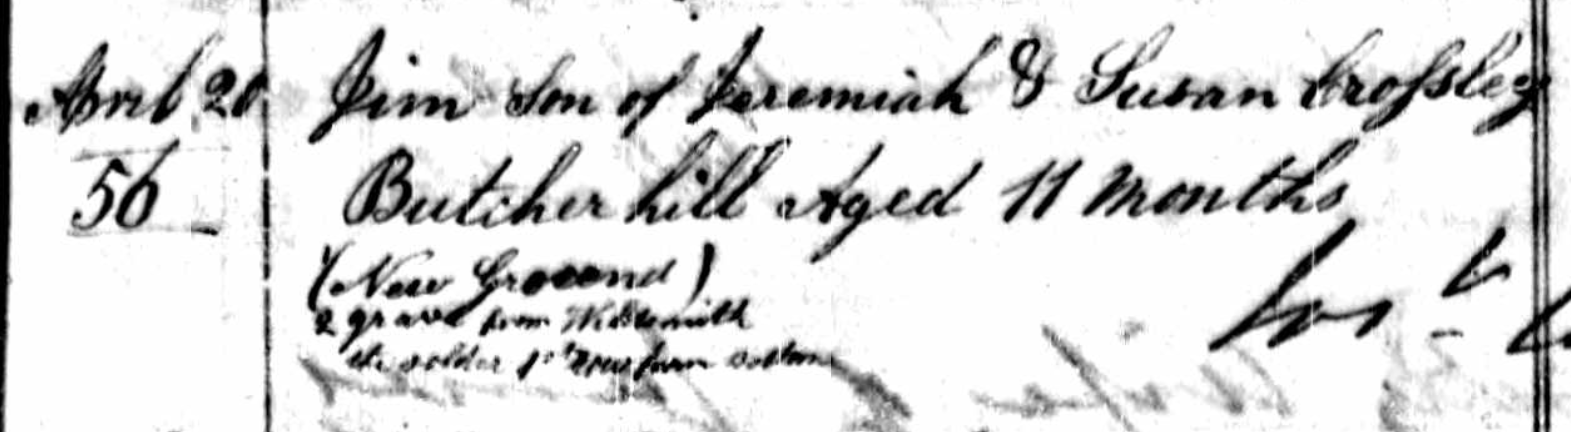 April 20 Jim Son of Jeremiah & Susan Crossley
56 Butcher hill Aged 11 Months
(New Ground)
2 grave from
the solder 1st Row from bottom